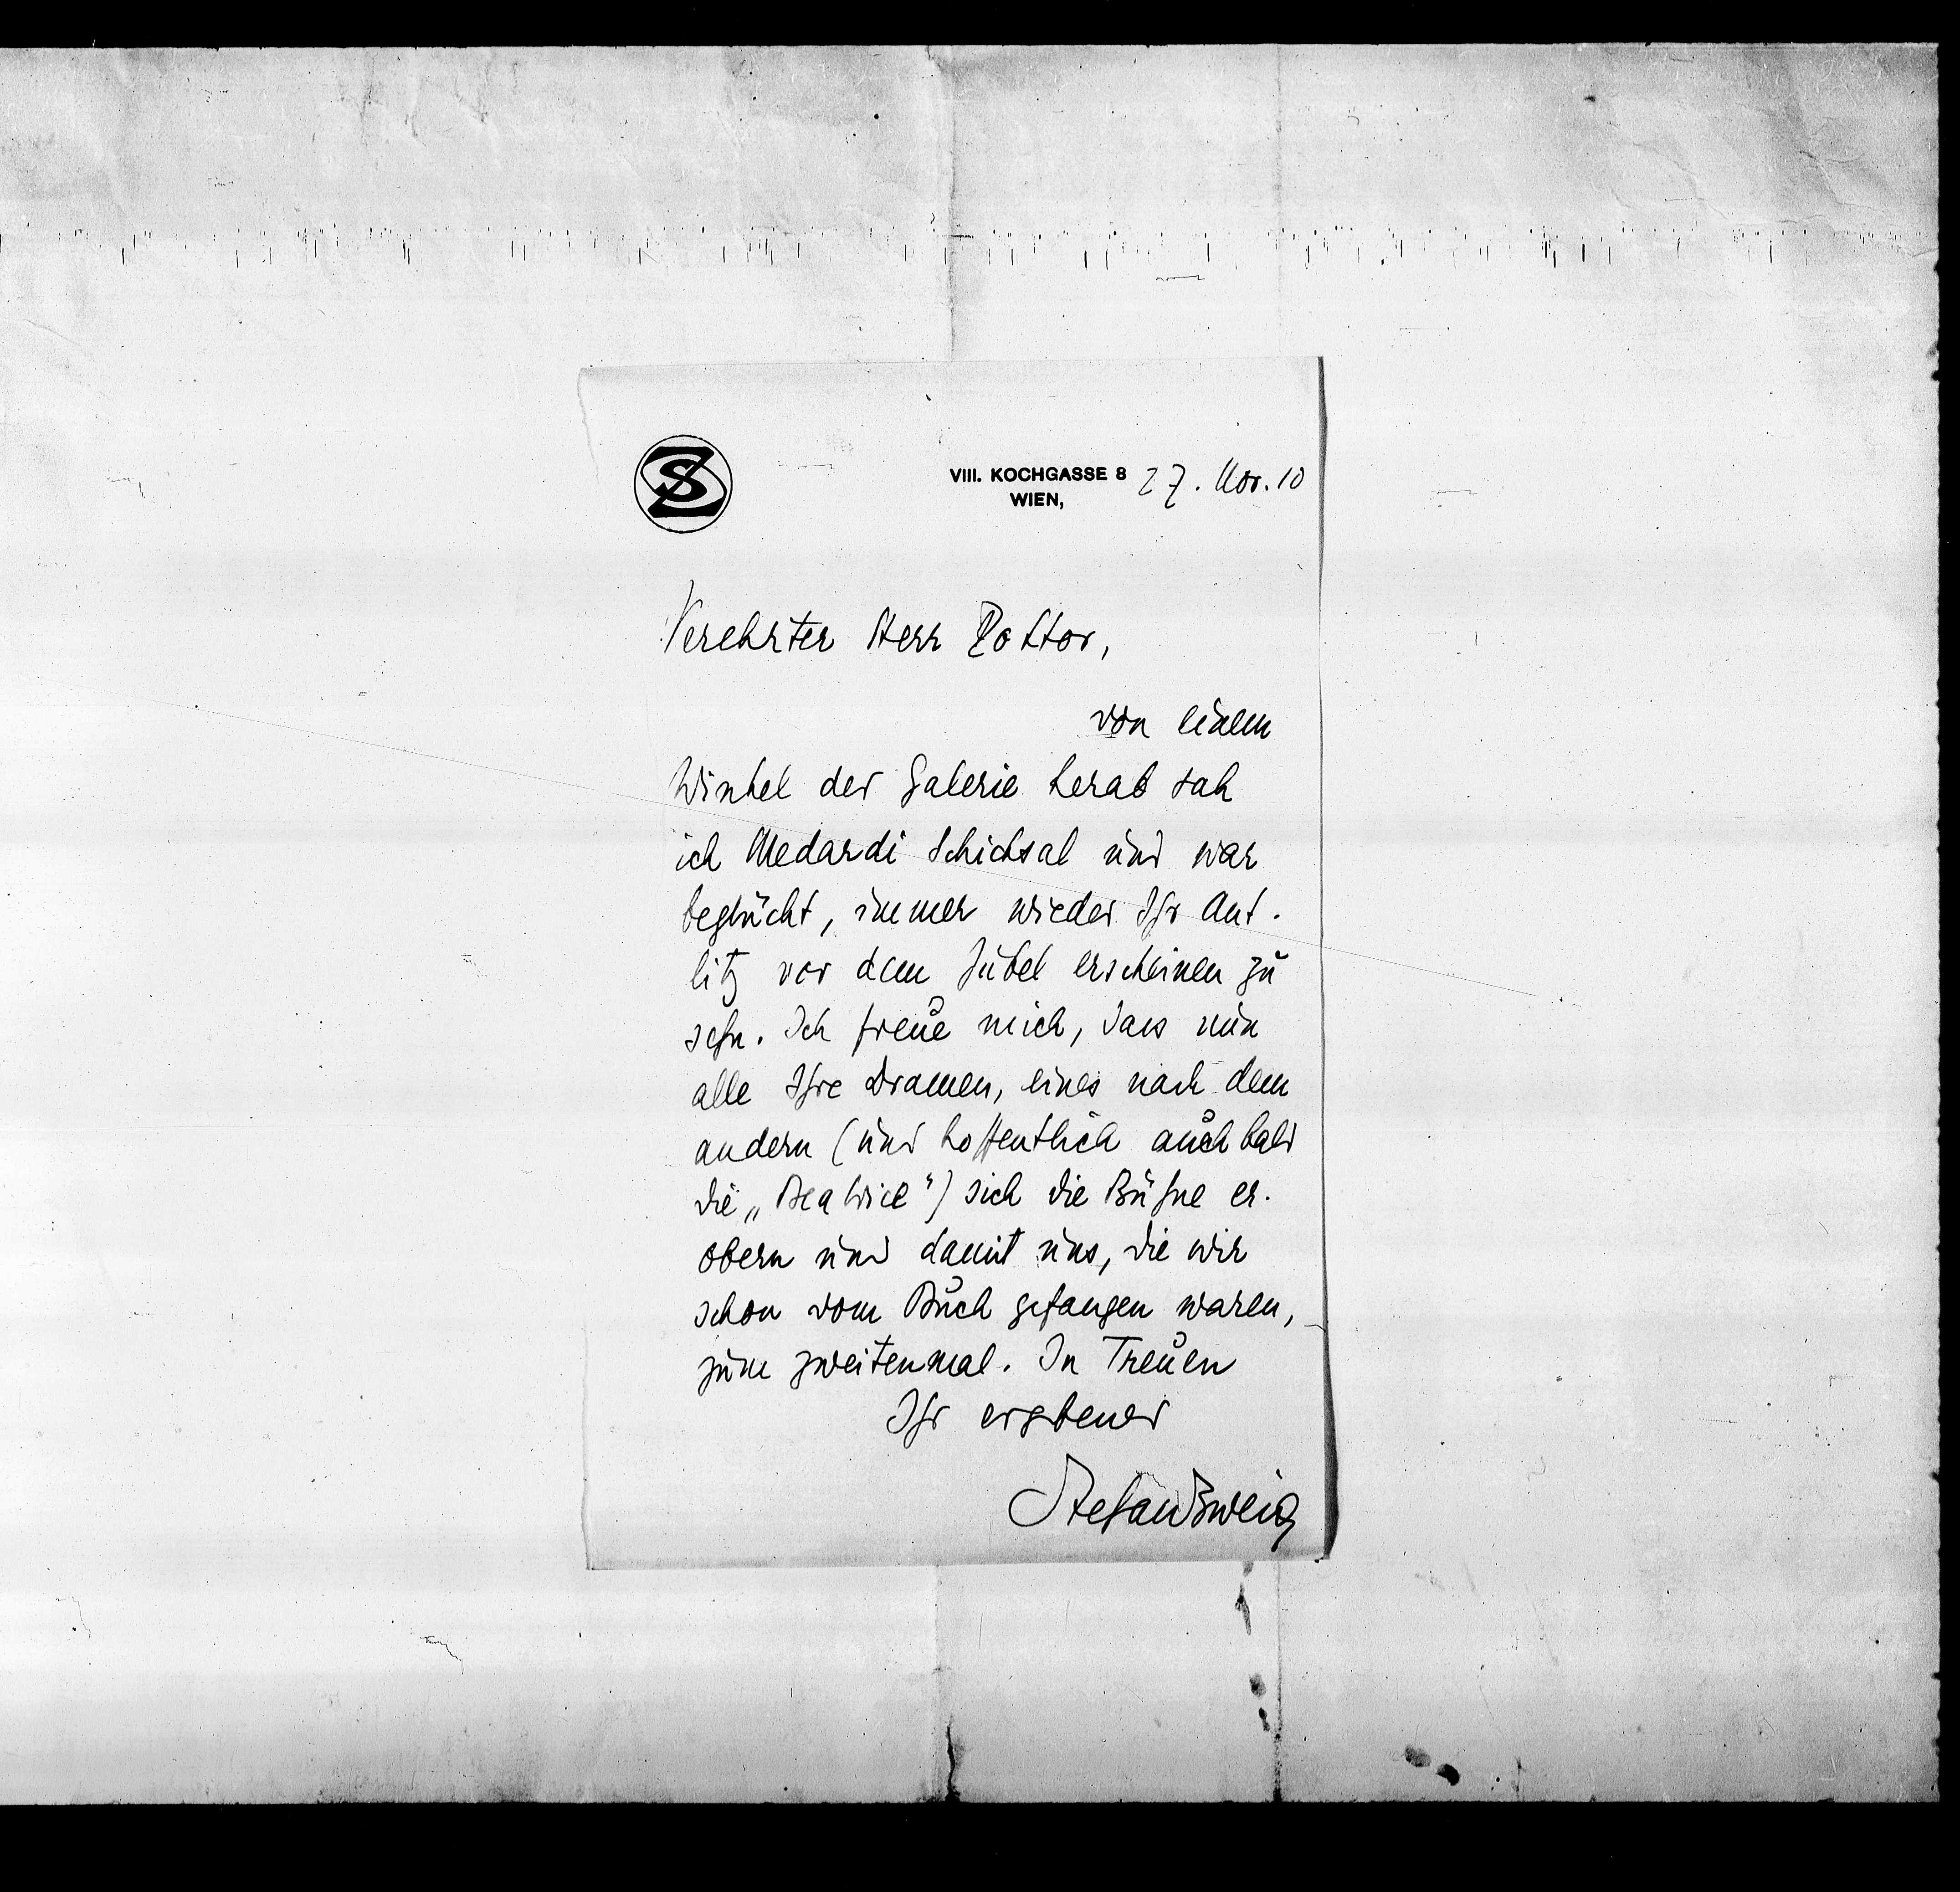 SZ
VIII. KOCHGASSE 8
WIEN,
27. Nov. 10
Verehrter Herr Doktor,
von einem
Winkel der Galerie herab sah
ich Medardi Schicksal und war
beglückt, immer wieder Ihr Ant-
litz vor dem Jubel erscheinen zu
sehn. Ich freue mich, dass nun
alle Ihre Dramen, eines nach dem
andern (und hoffentlich auch bald
die „Beatrice“) sich die Bühne er-
obern und damit uns, die wir
schon vom Buch gefangen waren,
zum zweitenmal. In Treuen
Ihr ergebener
Stefan Zweig